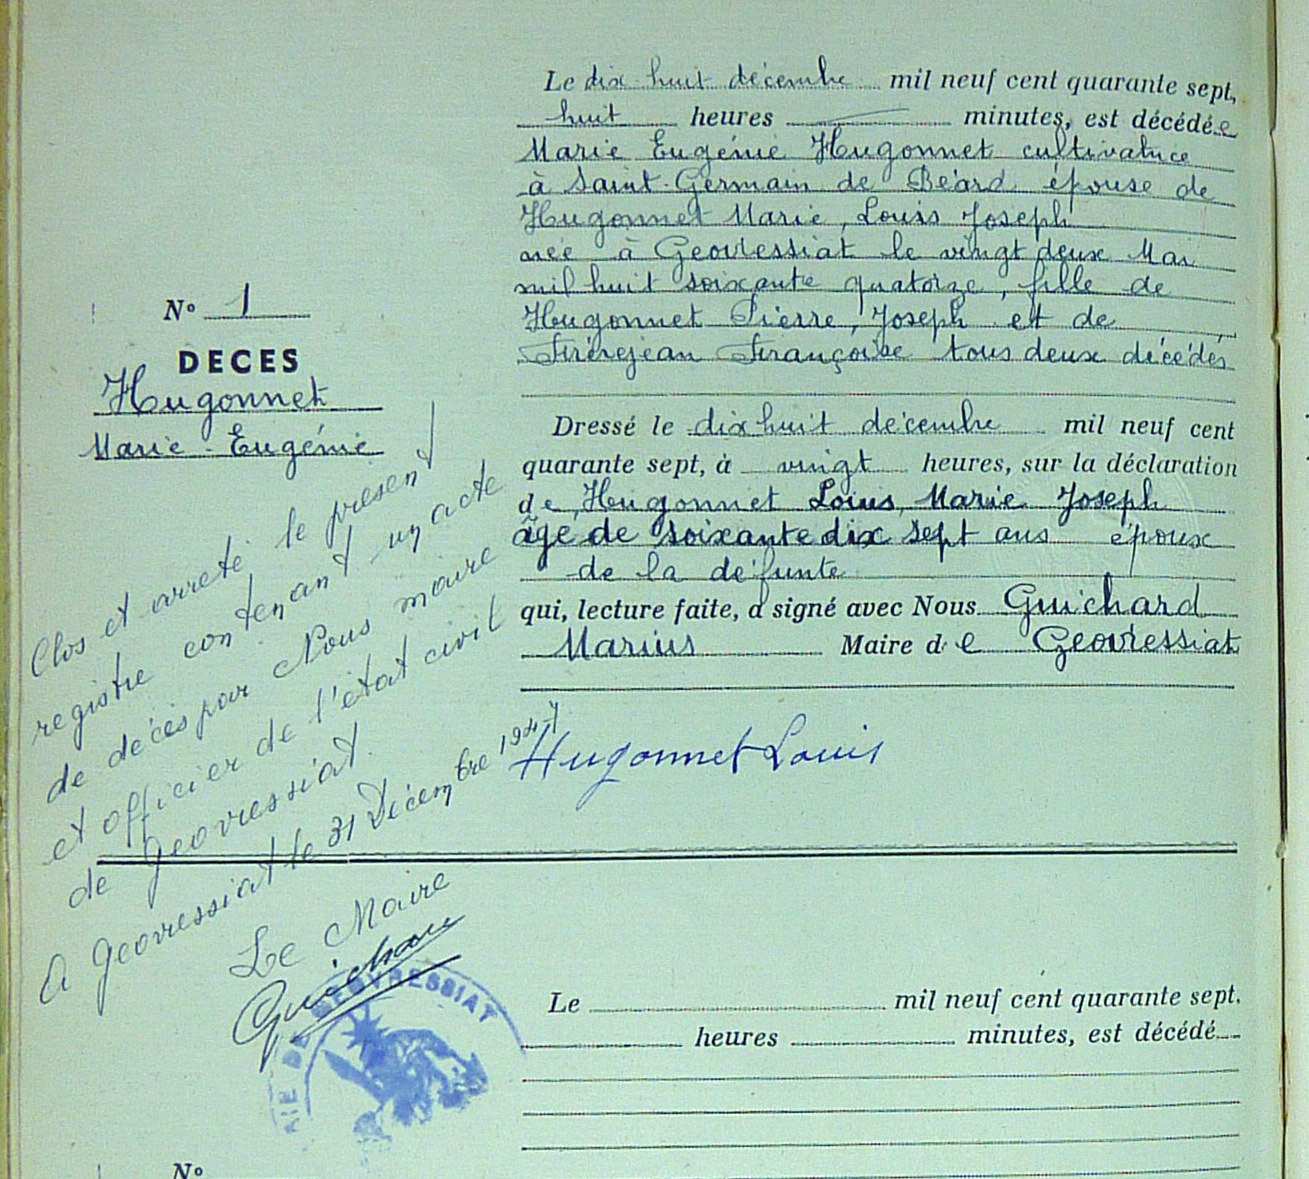 Le dix huit décembre mil neuf cent quarante sept,
huit heures — minutes, est décédée
Marie Eugénie Hugonnet cultivatrice
à Saint-Germain de Béard, épouse de
Hugonnet Marie, Louis Joseph
née à Geovressiat le vingt deux Mai
mil huit soixante quatorze, fille de
Hugonnet Pierre, Joseph et de
Firérejean Françoise tous deux décédés
N° 1
DECES
Hugonnet
Marie-Eugénie
Dressé le dix huit décembre mil neuf cent
quarante sept, à vingt heures, sur la déclaration
de, Hugonnet Louis, Marie Joseph
âge de soixante dix sept ans époux
de la défunte
qui, lecture faite, a signé avec Nous Guichard
Marius Maire de Geovressiat
Hugonnet Louis
Clos et arreté le present
registre contenant un acte
de décès par Nous maire
et officier de l'état civil
de Geovressiat.
A Geovressiat le 31 Décembre 1947
Le Maire
Guichard
RIE DE GEOVRESSIAT
Le mil neuf cent quarante sept.
heures minutes, est décédé
N°